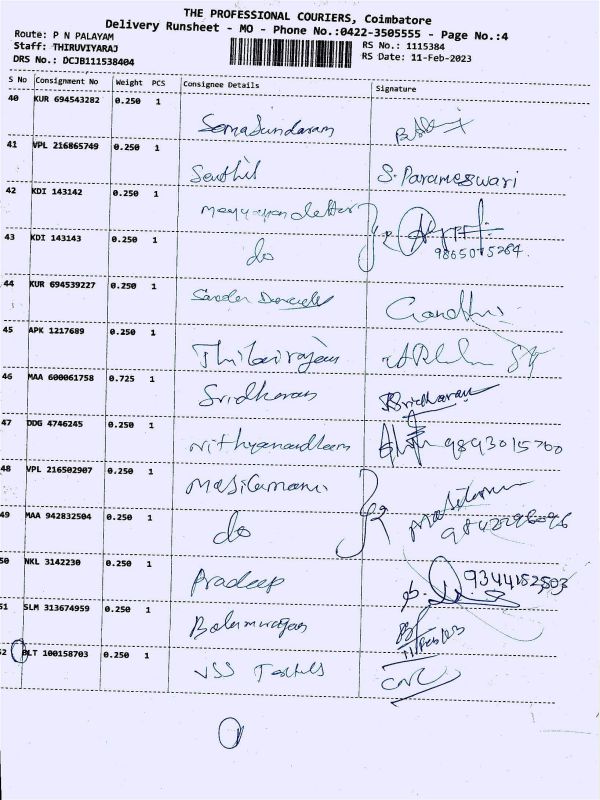 THE PROFESSIONAL COURIERS, Coimbatore
Delivery Runsheet - MO - Phone No.:0422-3505555 - Page No.:4
Route: P N PALAYAM
Staff: THIRUVIYARAJ RS No.: 1115384
DRS No.: DCJB111538404 RS Date: 11-Feb-2023
S No Consignment No Weight PCS Consignee Details Signature
40 KUR 694543282 0.250 1
Somasundaram
41 VPL 216865749 0.250 1
Senthil S. Parameswari
42 KDI 143142 0.250 1
43 KDI 143143 0.250 1
do 9865075284
44 KUR 694539227 0.250 1
Gandhi
45 APK 1217689 0.250 1
46 MAA 600061758 0.725 1
Sridharan Sridharan
47 DDG 4746245 0.250 1
Nithyanandham
48 VPL 216502907 0.250 1
Masilamani
49 MAA 942832504 0.250 1
do
50 NKL 3142230 0.250 1
Pradeep 9344152503
51 SLM 313674959 0.250 1
Balamurugan
52 BLT 100158703 0.250 1
VSS Textiles